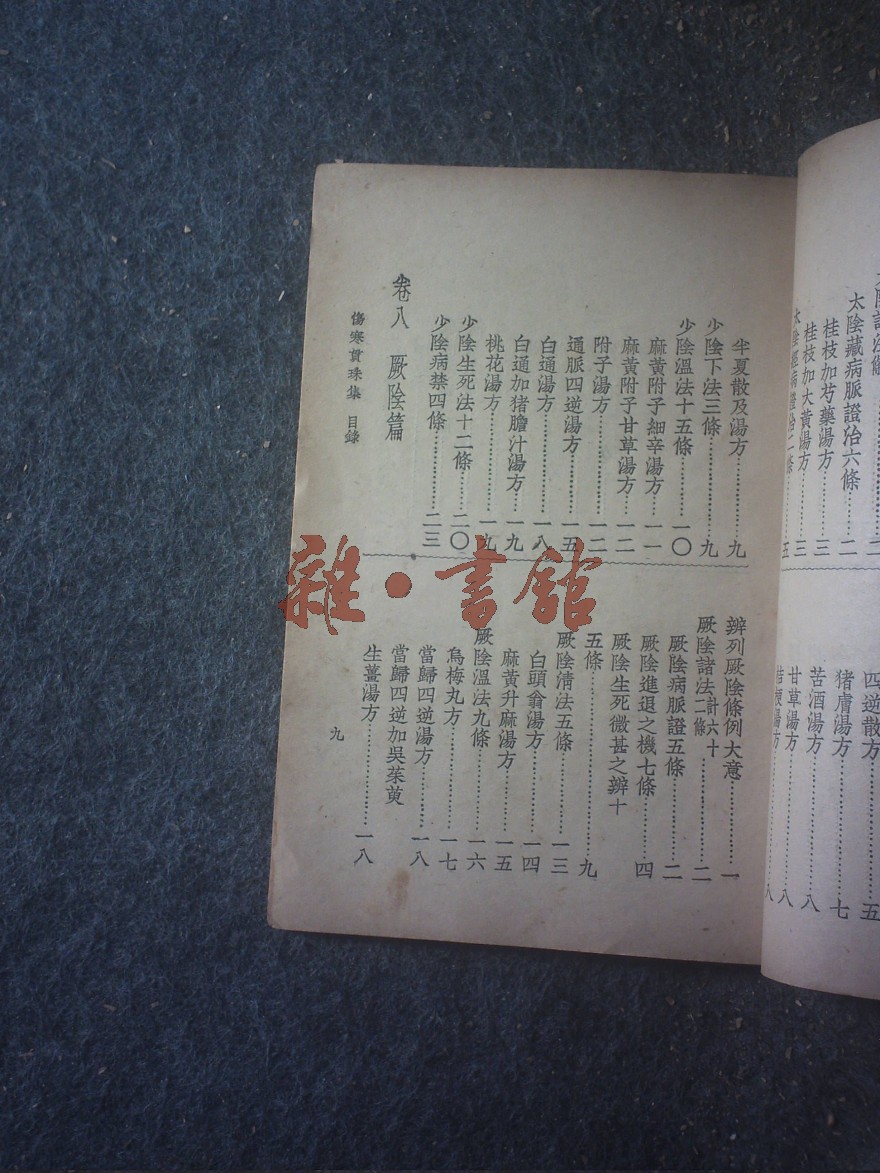 太陰藏病脈證治六條……二
桂枝加芍藥湯方……三
桂枝加大黃湯方……三
太陰經病證治二條……五
四逆散方……五
猪膚湯方……七
苦酒湯方……八
甘草湯方……八
桔梗湯方……八
半夏散及湯方……九
少陰下法三條……九
少陰溫法十五條……一〇
麻黃附子細辛湯方……一一
麻黃附子甘草湯方……一二
附子湯方……一二
通脈四逆湯方……一五
白通湯方……一八
白通加猪膽汁湯方……一九
桃花湯方……一九
少陰生死法十二條……二〇
少陰病禁四條……二三
卷八　厥陰篇
辨列厥陰條例大意……一
厥陰諸法計六十二條……二
厥陰病脈證五條……二
厥陰進退之機七條……四
厥陰生死微甚之辨十
五條……九
厥陰清法五條……一三
白頭翁湯方……一四
麻黃升麻湯方……一五
厥陰溫法九條……一六
烏梅丸方……一七
當歸四逆湯方……一八
當歸四逆加吳茱萸
生薑湯方……一八
傷寒貫珠集　目錄
九
雜·書館